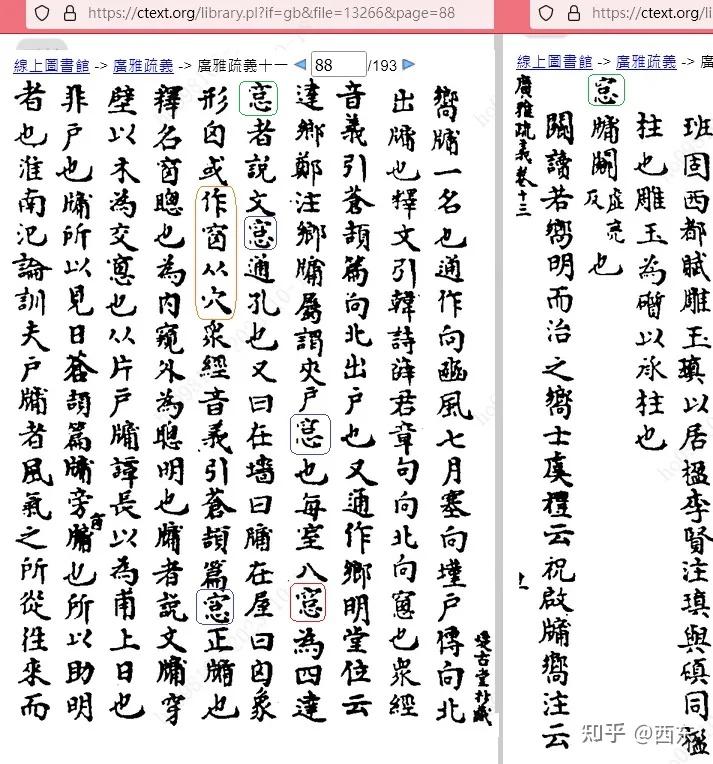 https://ctext.org/library.pl?if=gb&file=13266&page=88
https://ctext.org/li
線上圖書館 -> 廣雅疏義 -> 廣雅疏義十一 88 /193
線上圖書館 -> 廣雅疏義 -> 廣
班固西都賦雕玉瑱以居楹李賢注瑱與磌同楹
柱也雕玉為礩以承柱也
窓牖虛亮反也
讀若嚮明而治之嚮士虞禮云祝啟牖嚮注云
廣雅疏義卷十三
十一
嚮牖一名也通作向豳風七月塞向墐戶傳向北
出牖也釋文引韓詩薛君章句向北向窻也衆經
音義引蒼頡篇向北出戶也又通作鄉明堂位云
達鄉鄭注鄉牖屬謂夾戶窓也每室八窓為四達
窓者說文窓通孔也又曰在墻曰牖在屋曰囪象
形囪或作窗从穴衆經音義引蒼頡篇窓正牖也
釋名窗聰也為內窺外為聰明也牖者說文牖穿
壁以木為交窻也从片戶牖譚長以為甫上日也
非戶也牖所以見日蒼頡篇牖旁窗也所以助明
者也淮南氾論訓夫戶牖者風氣之所從往來而
愛古堂抄藏
知乎 @西东